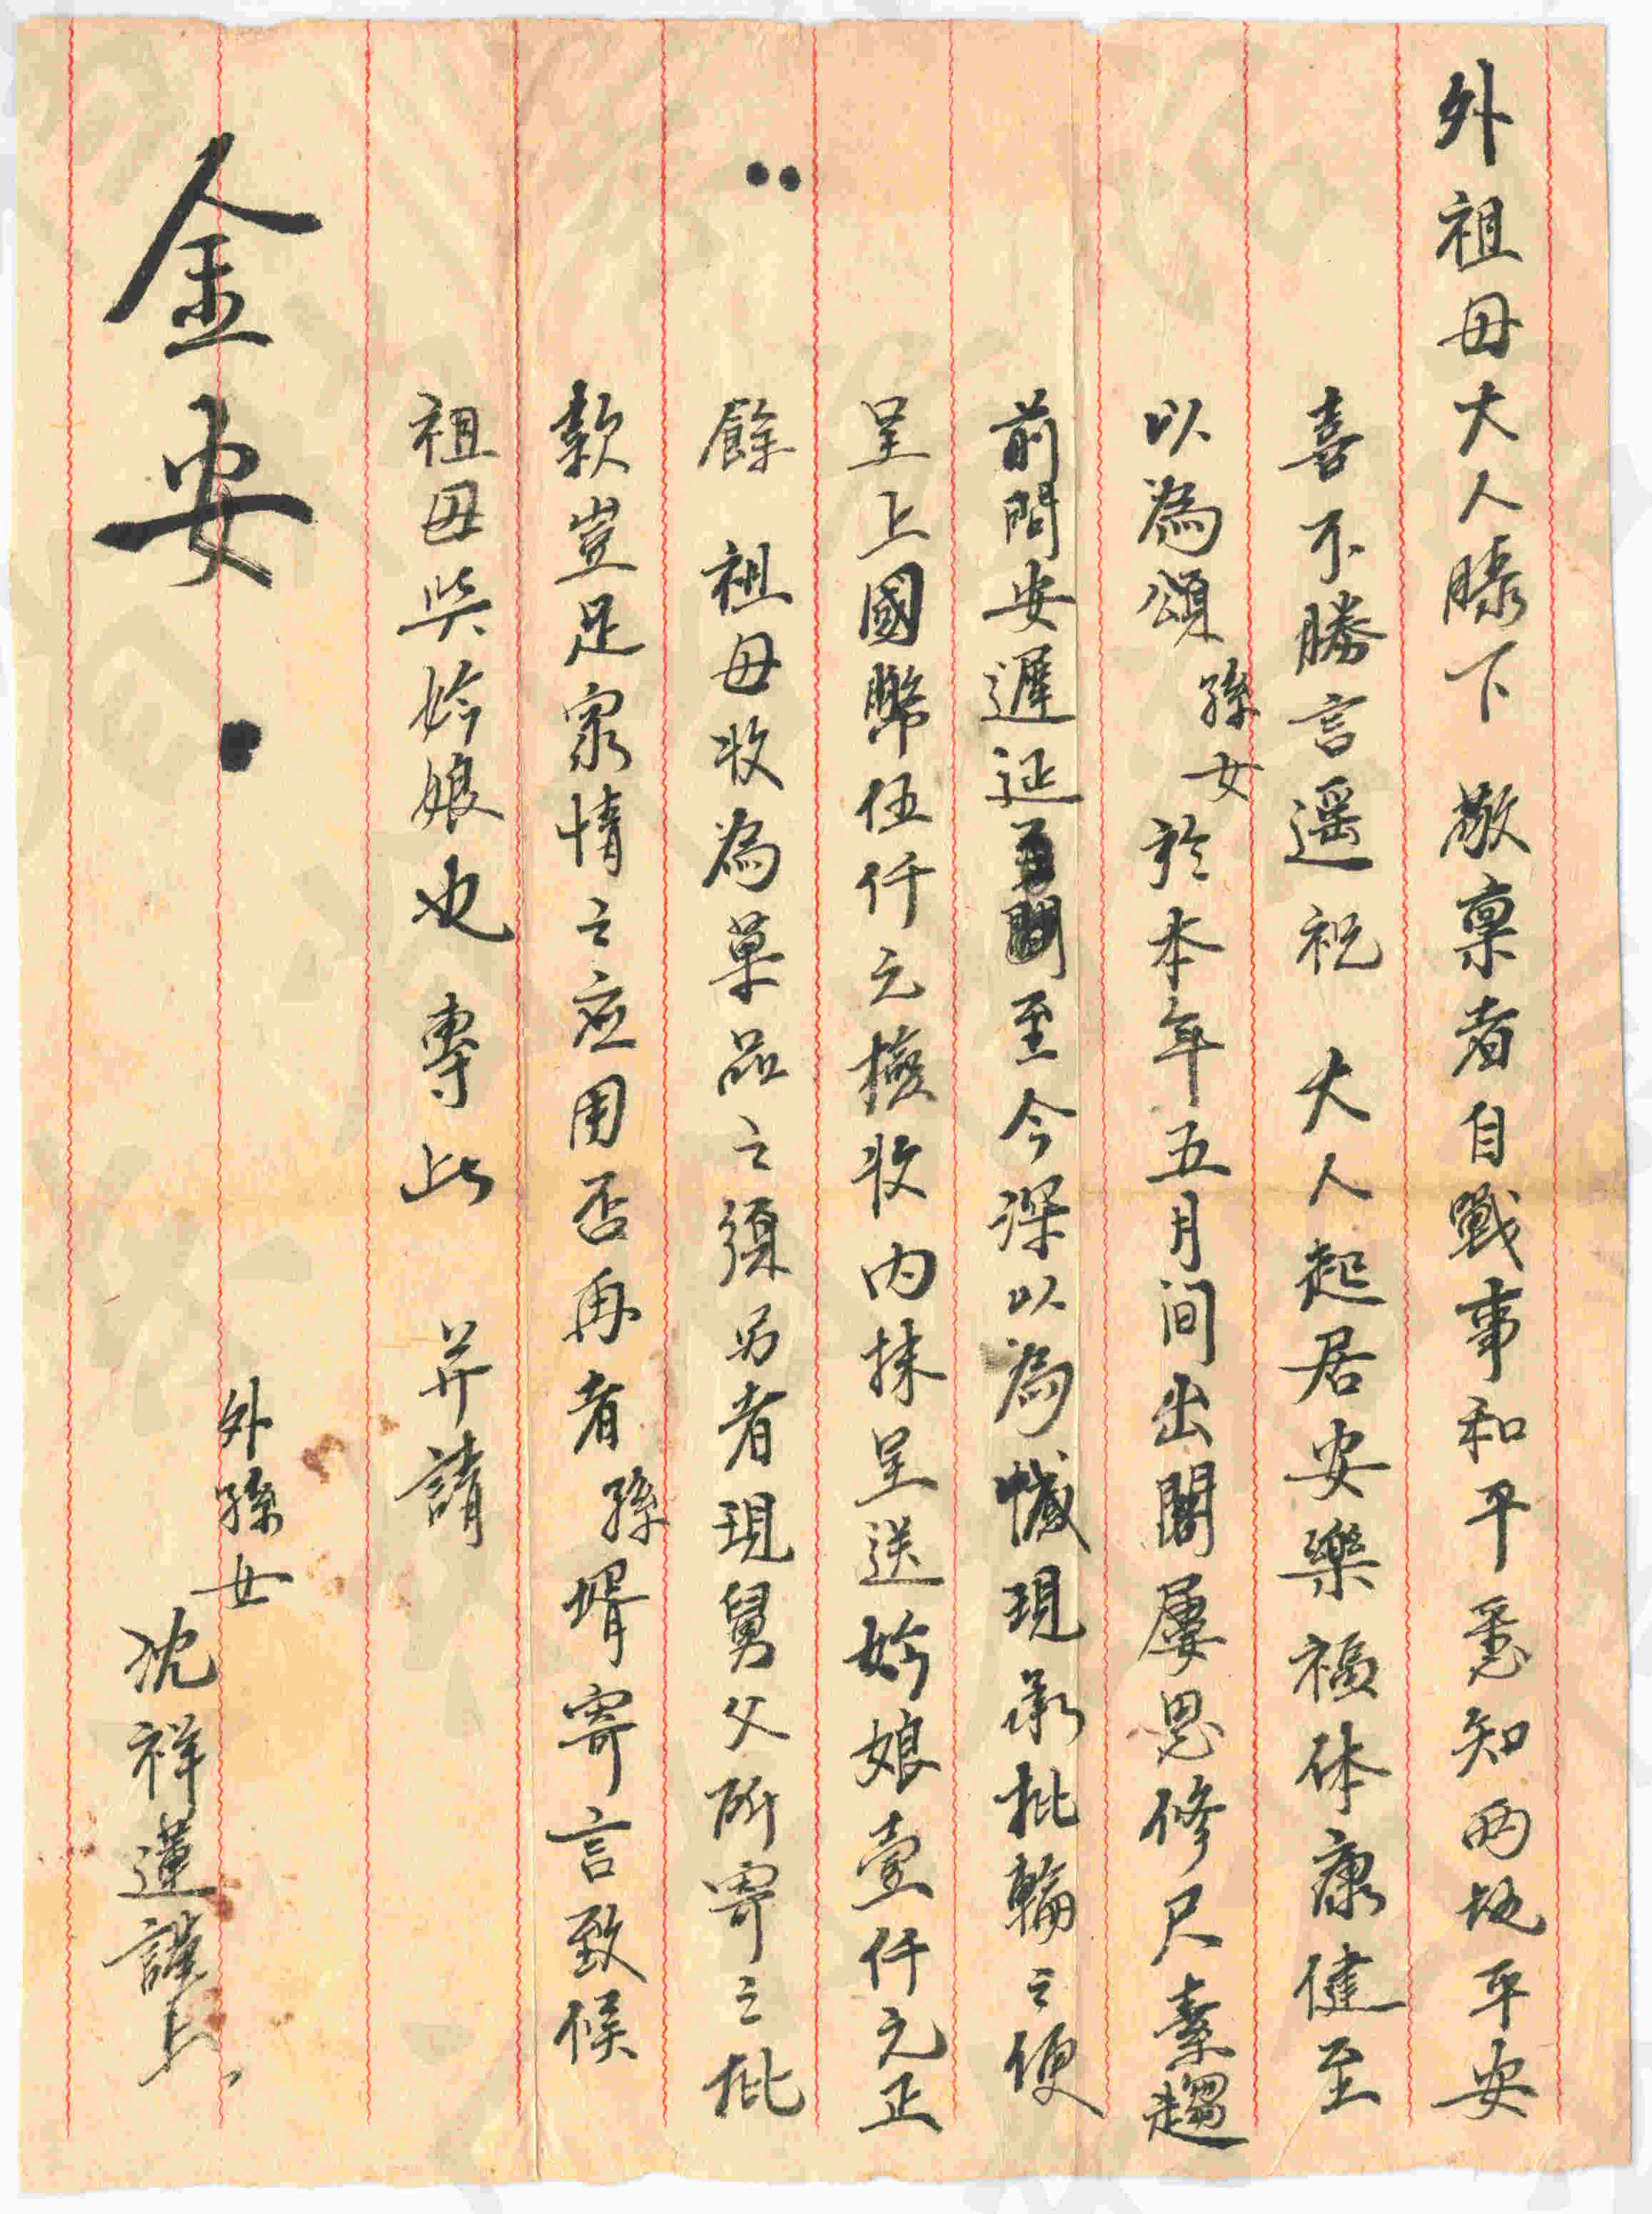 外祖母大人膝下 敬稟者自戰事和平悉知兩地平安
喜不勝言遥祝 大人起居安樂福体康健至
以為頌孫女於本年五月间出閣屢思修尺素趨
前問安遲延至今深以為憾現承批輪之便
呈上國幣伍仟元檢收内抹呈送妗娘壹仟元正
餘 祖母收為菓品之須另者現舅父所寄之批
款豈足家情之应用否再者孫壻寄言致候
祖母與妗娘也 專此 并請
金安
外孫女
沈祥蓮謹上